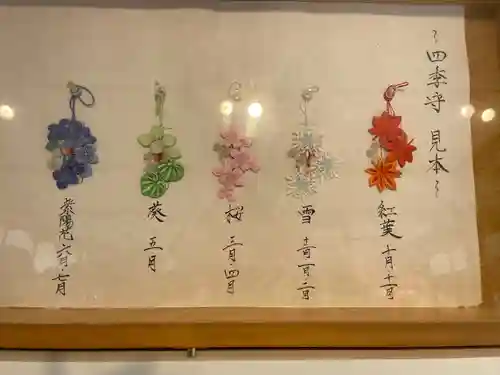 ~四季守 見本~
紅葉 十月・十一月
雪 十二月・一月・二月
桜 三月・四月
葵 五月
紫陽花 六月・七月